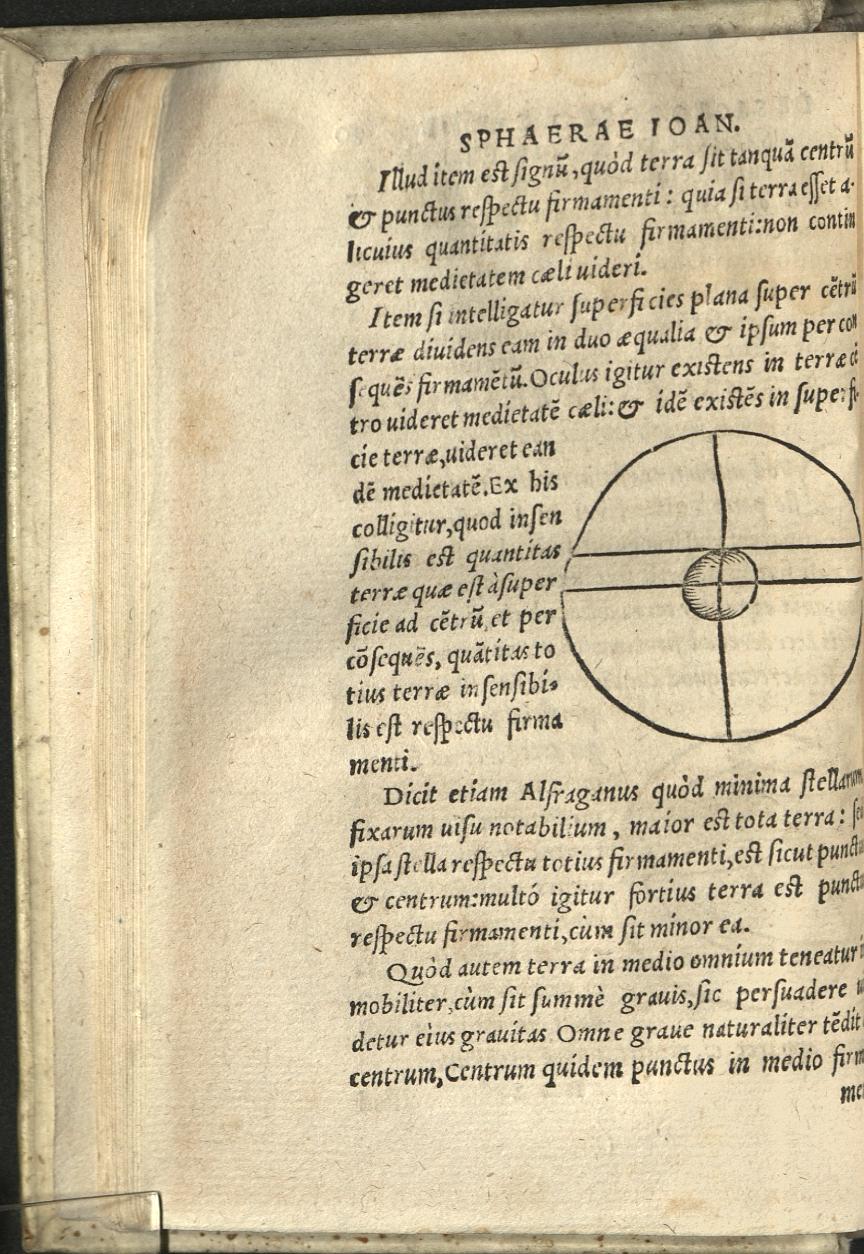 SPHAERAE IOAN.
Illud item est signũ, quòd terra sit tanquã centrũ
& punctus respectu firmamenti: quia si terra esset a-
licuius quantitatis respectu firmamenti: non contin
geret medietatem cæli uideri.
Item si intelligatur superficies plana super cẽtrũ
terræ diuidens eam in duo æqualia & ipsum per con
sequẽs firmamẽtũ. Oculus igitur existens in terræ cẽ
tro uideret medietatẽ cæli: & idẽ existẽs in superfi-
cie terræ, uideret ean
dẽ medietatẽ. Ex his
colligitur, quod insen
sibilis est quantitas
terræ quæ est à super
ficie ad cẽtrũ, et per
cõsequẽs, quãtitas to
tius terræ insensibi-
lis est respectu firma
menti.
Dicit etiam Alfraganus quòd minima stellarum
fixarum uisu notabilium, maior est tota terra: sed
ipsa stella respectu totius firmamenti, est sicut punctus
& centrum: multó igitur fortius terra est punctus
respectu firmamenti, cùm sit minor ea.
Quòd autem terra in medio omnium teneatur i
mobiliter, cùm sit summè grauis, sic persuadere ui
detur eius grauitas Omne graue naturaliter tẽdit
centrum, Centrum quidem punctus in medio firm
me